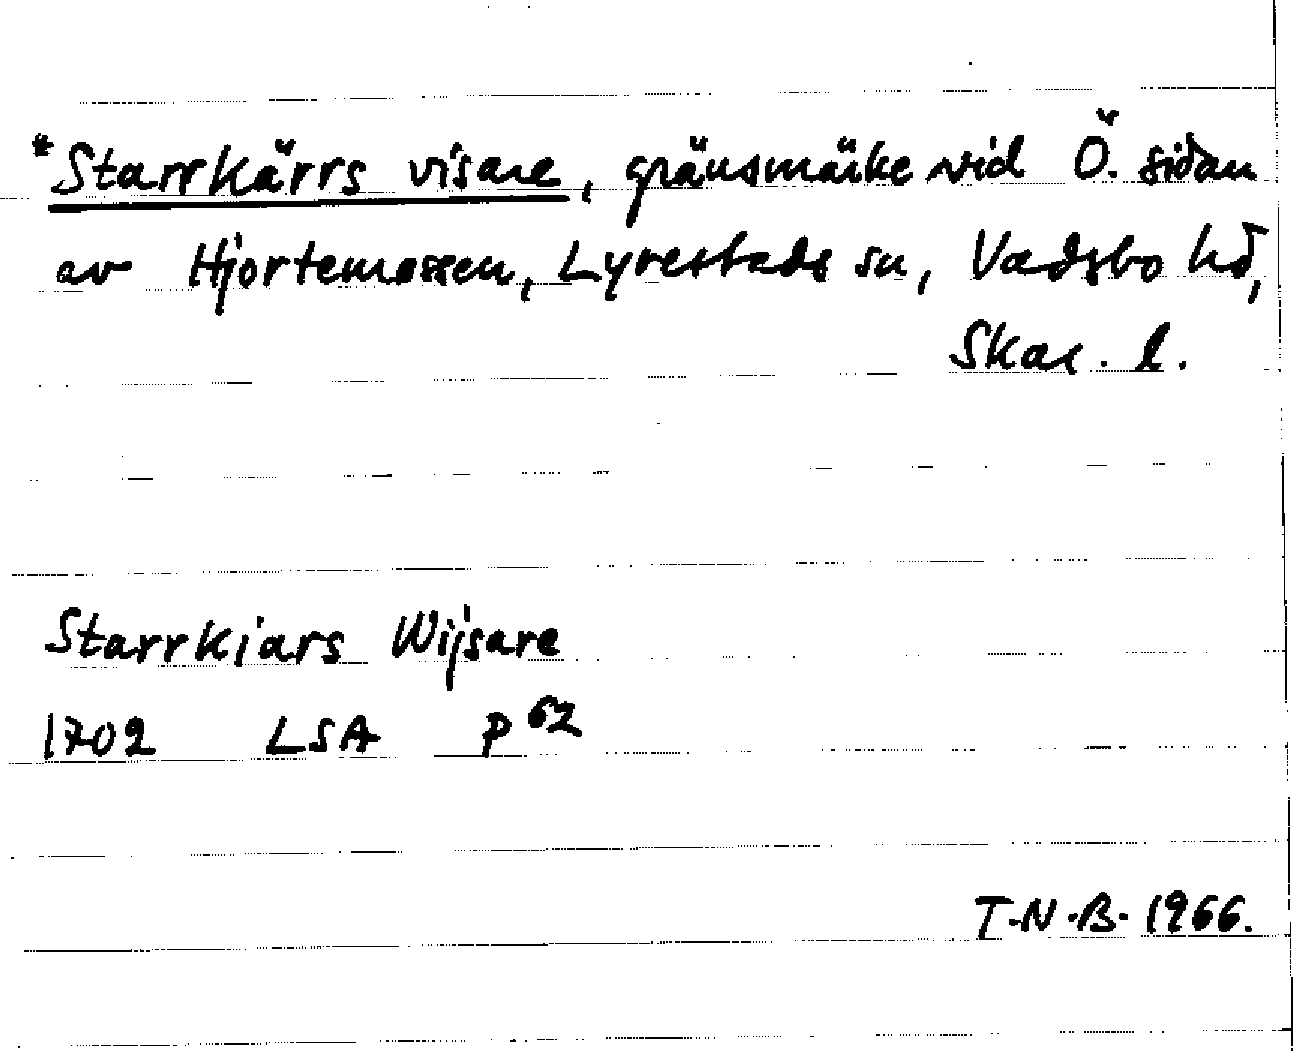 *Starrkärrs visare, gränsmärke vid Ö. sidan
av Hjortemossen, Lyrestads sn, Vadsbo hd,
Skar. l.
Starrkiars Wijsare
1702 LSA P 62
T.N.B. 1966.